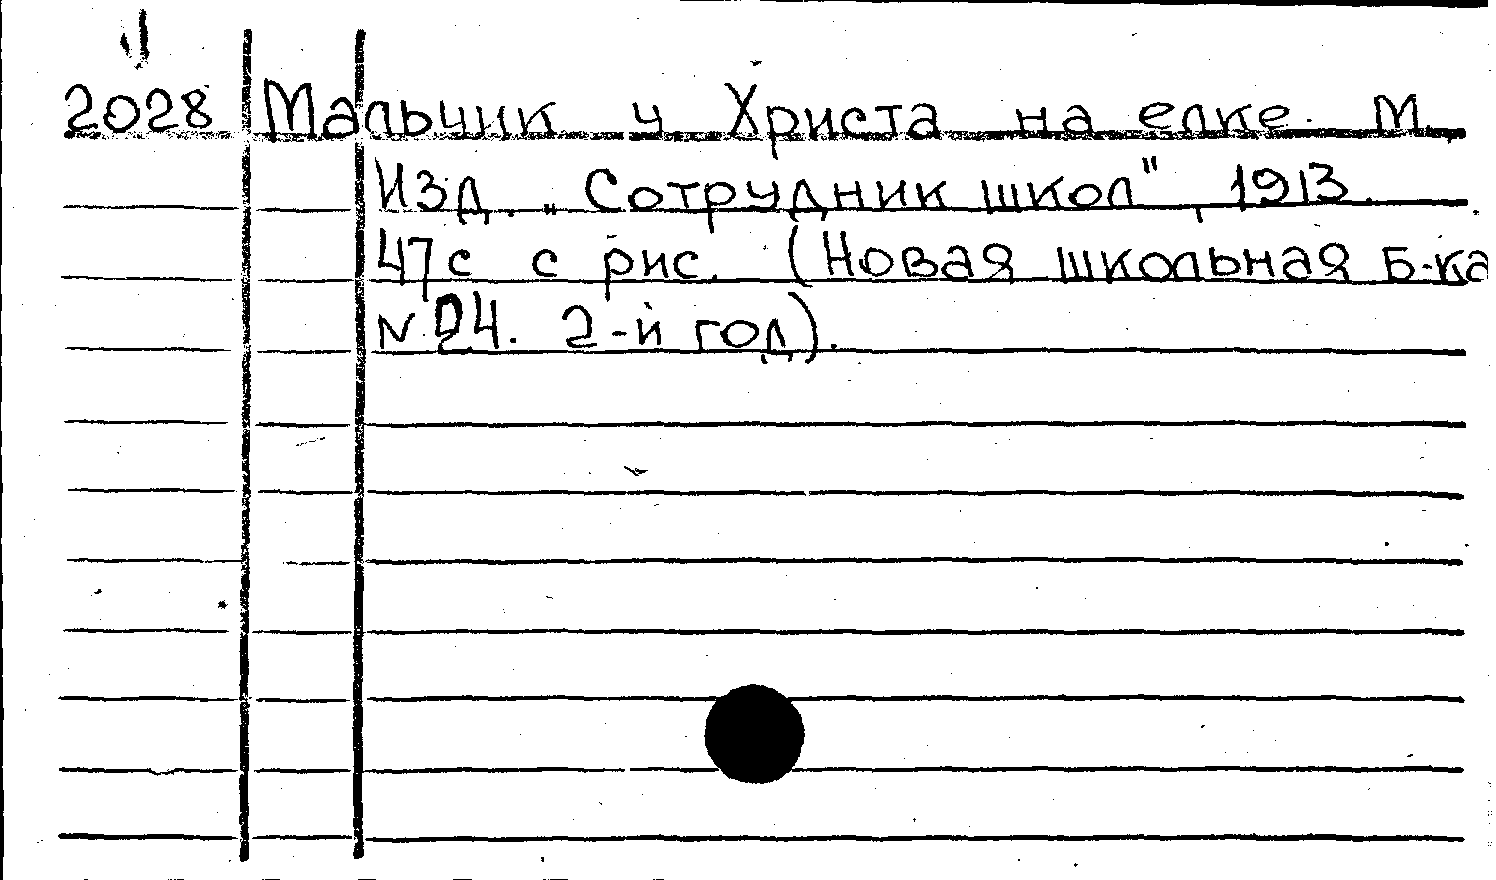 2028 Мальчик у Христа на елке. М.
Изд. „Сотрудник школ", 1913.
47с с рис. (Новая школьная Б-ка
N 24. 2-й год).